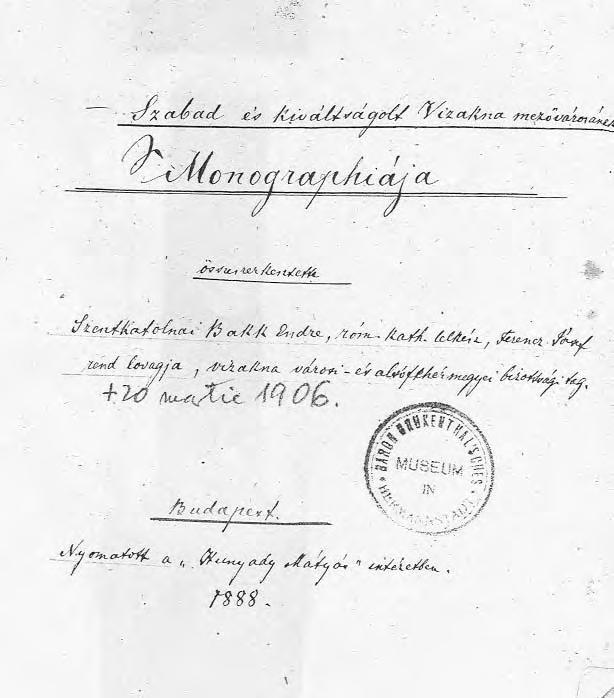 — Szabad és kiváltságolt Vizakna mezővárosának
Monographiája
összeszerkesztette
Szentkatolnai Bakk Endre, róm. kath. lelkész, Ferencz József
rend lovagja, vizakna városi- és alsófehérmegyei bizottsági tag.
+20 martie 1906.
BARON BRUKENTHAL'SCHES
MUSEUM
IN
HERMANNSTADT
Budapest.
Nyomatott a „Hunyady Mátyás" intézetben.
1888.